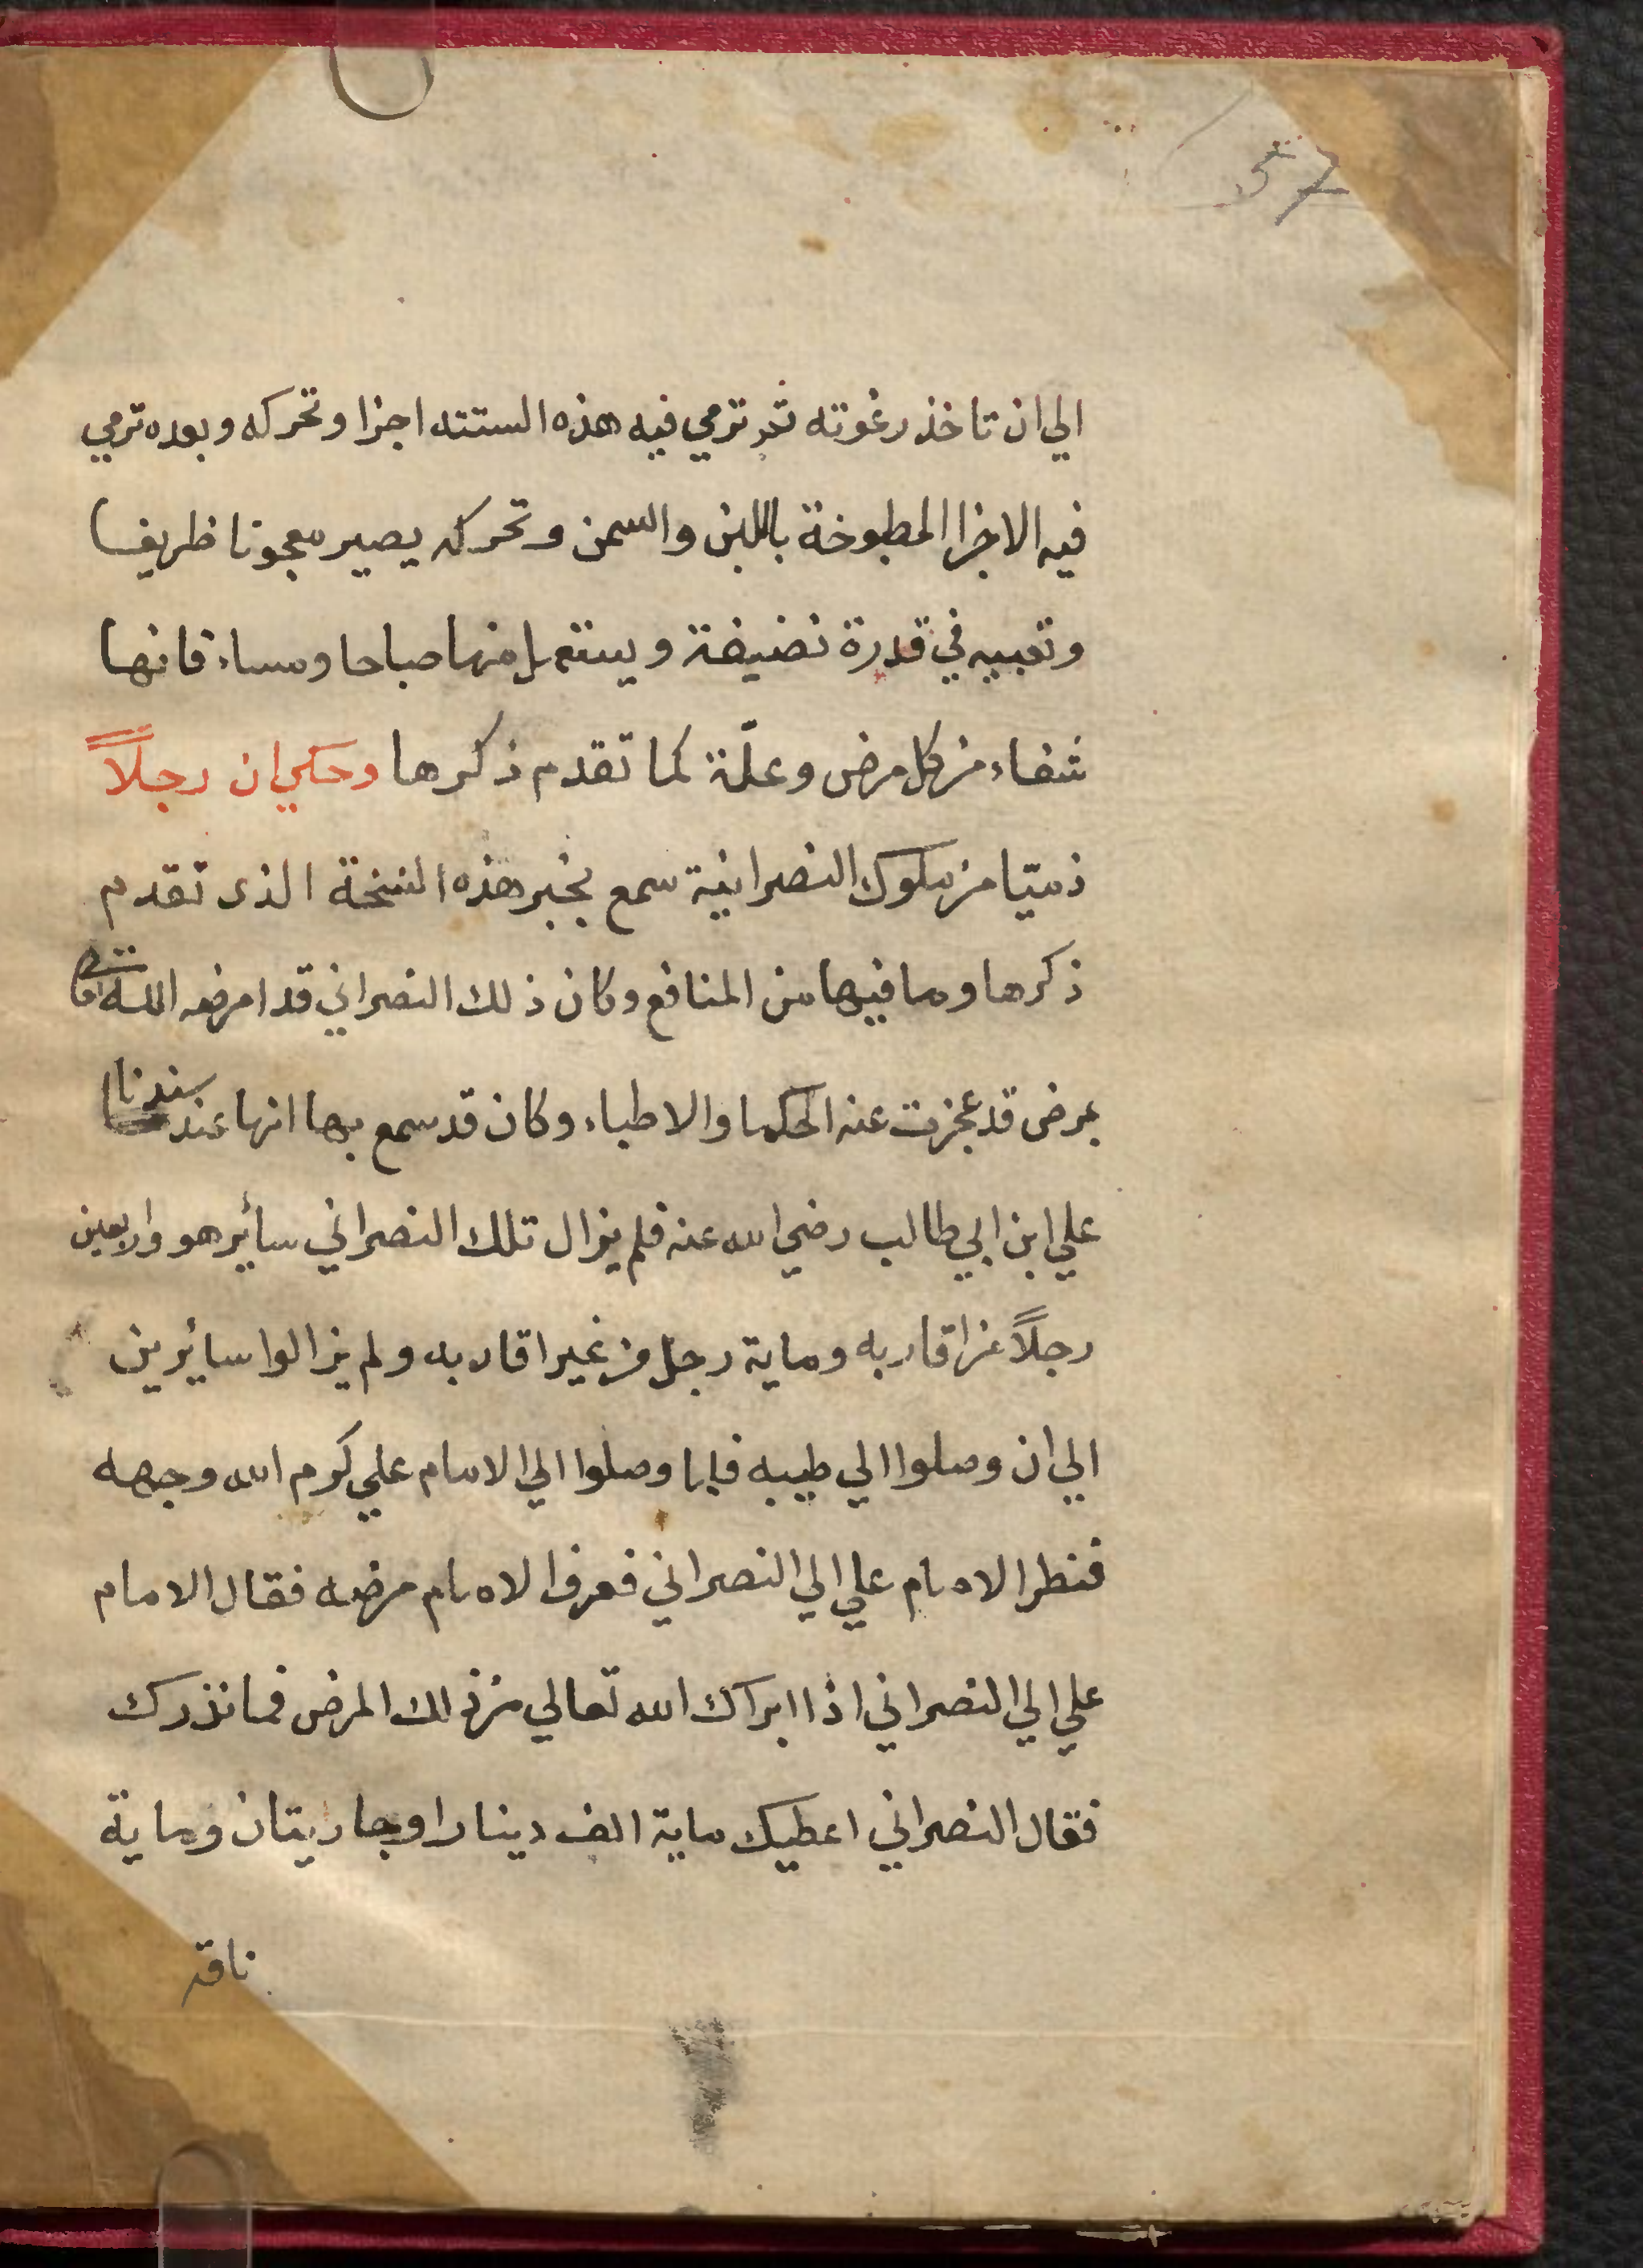 57
الي ان تاخذ رغوته ثم ترمي فيه هذه الستته اجزا وتحركه وبعده ترمي
فيه الاجزا المطبوخة باللبن والسمن وتحركه يصير معجونا ظريفا
وتعبيه في قدرة نضيفة ويستعمل منها صباحا ومساء فانها
شفاء من كل مرض وعلّة كما تقدم ذكرها وحكي ان رجلاً
ذميّا من ملوك النصرانية سمع بخبر هذه النسخة الذى تقدم
ذكرها وما فيها من المنافع وكان ذلك النصراني قد امرضه الله
بمرض قد عجزت عنه الحكما والاطباء وكان قد سمع بها انها عند سيدنا
علي ابن ابي طالب رضي الله عنه فلم يزال تلك النصراني سائير هو واربعين
رجلاً من اقاربه وماية رجل من غير اقاربه ولم يزالوا سائيرين
الي ان وصلوا الي طيبه فلما وصلوا الي الامام علي كرم الله وجهه
فنظر الامام علي الي النصراني فعرف الامام مرضه فقال الامام
علي الي النصراني اذا ابراك الله تعالي من ذالك المرض فما نذرك
فقال النصراني اعطيك ماية الف دينارا وجاريتان وماية
ناقة